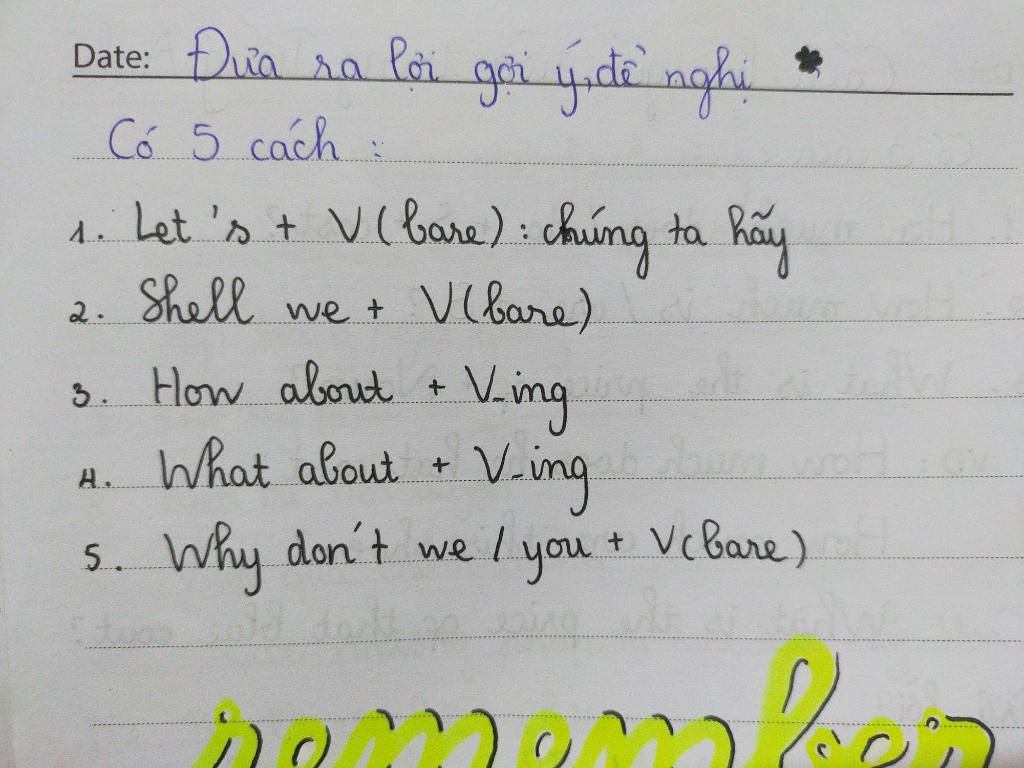 Date: Đưa ra lời gợi ý, đề nghị
Có 5 cách :
1. Let's + V(bare) : chúng ta hãy
2. Shell we + V(bare)
3. How about + V-ing
4. What about + V-ing
5. Why don't we / you + V(bare)
remember